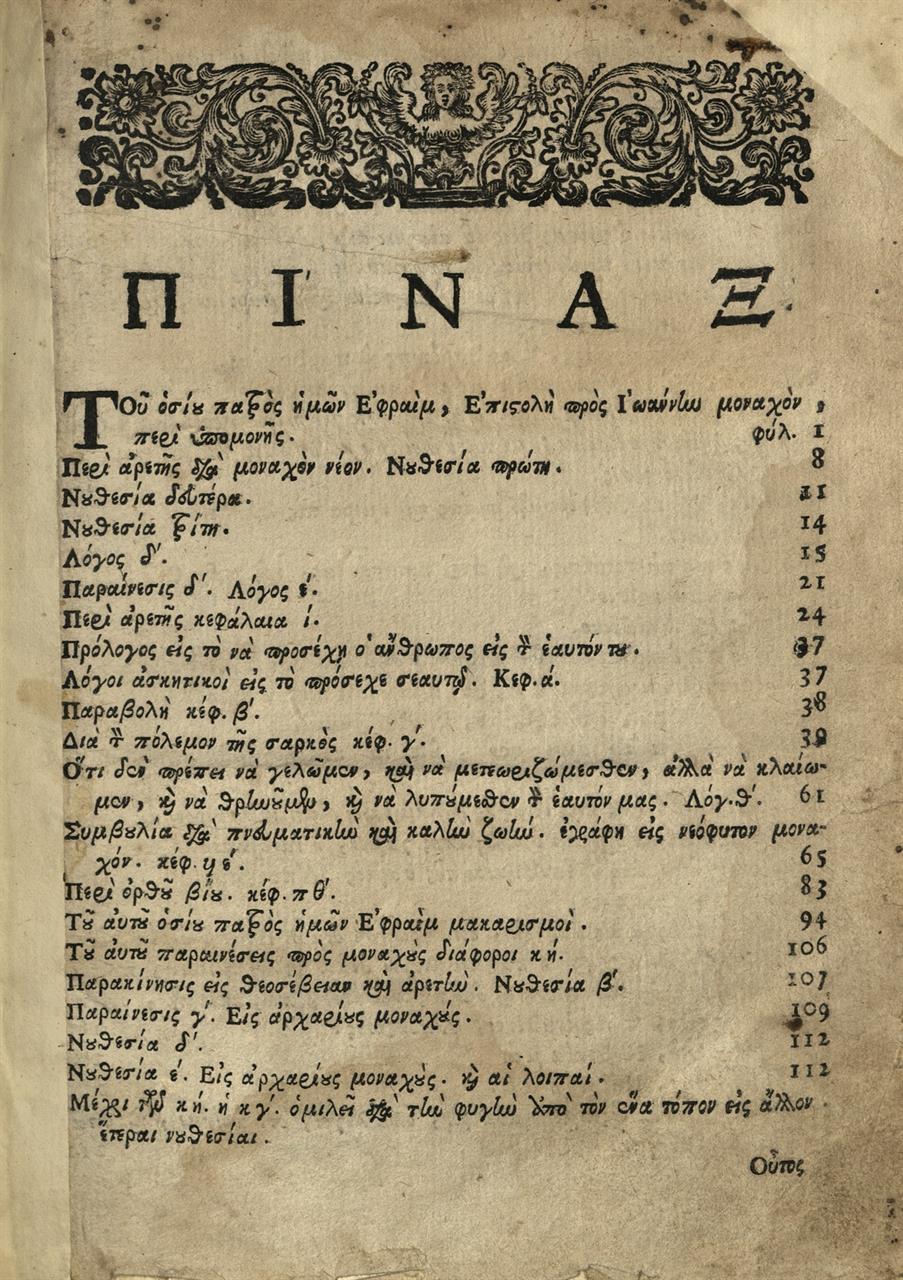 ΠΙΝΑΞ
Τοῦ ὁσίου πατρὸς ἡμῶν Ἐφραὶμ, Ἐπιστολὴ πρὸς Ἰωάννην μοναχὸν,
περὶ ὑπομονῆς. φύλ. 1
Περὶ ἀρετῆς διὰ μοναχὸν νέον. Νουθεσία πρώτη. 8
Νουθεσία δευτέρα. 11
Νουθεσία τρίτη. 14
Λόγος δ'. 15
Παραίνεσις δ'. Λόγος έ. 21
Περὶ ἀρετῆς κεφάλαια ί. 24
Πρόλογος εἰς τὸ νὰ προσέχῃ ὁ ἄνθρωπος εἰς τὸν ἑαυτόν του. 37
Λόγοι ἀσκητικοὶ εἰς τὸ πρόσεχε σεαυτῷ. Κεφ. ά. 37
Παραβολὴ κέφ. β'. 38
Διὰ τὸν πόλεμον τῆς σαρκὸς κέφ. γ'. 39
Ὅτι δὲν πρέπει νὰ γελῶμεν, καὶ νὰ μετεωριζώμεσθεν, ἀλλὰ νὰ κλαίω-
μεν, καὶ νὰ θρηνοῦμεν, καὶ νὰ λυπούμεθεν τὸν ἑαυτόν μας. Λόγ. θ'. 61
Συμβουλία διὰ πνευματικὴν καὶ καλὴν ζωήν. ἐγράφη εἰς νεόφυτον μονα-
χόν. κέφ. ϟέ. 65
Περὶ ὀρθοῦ βίου. κέφ. πθ'. 83
Τοῦ αὐτοῦ ὁσίου πατρὸς ἡμῶν Ἐφραὶμ μακαρισμοὶ. 94
Τοῦ αὐτοῦ παραινέσεις πρὸς μοναχοὺς διάφοροι κή. 106
Παρακίνησις εἰς θεοσέβειαν καὶ ἀρετὴν. Νουθεσία β'. 107
Παραίνεσις γ'. Εἰς ἀρχαρίους μοναχούς. 109
Νουθεσία δ'. 112
Νουθεσία έ. Εἰς ἀρχαρίους μοναχοὺς. καὶ αἱ λοιπαί. 112
Μέχρι τῶν κή. ἡ κγ'. ὁμιλεῖ διὰ τὴν φυγὴν ἀπὸ τὸν ἕνα τόπον εἰς ἄλλον.
ἕτεραι νουθεσίαι.
Οὗτος